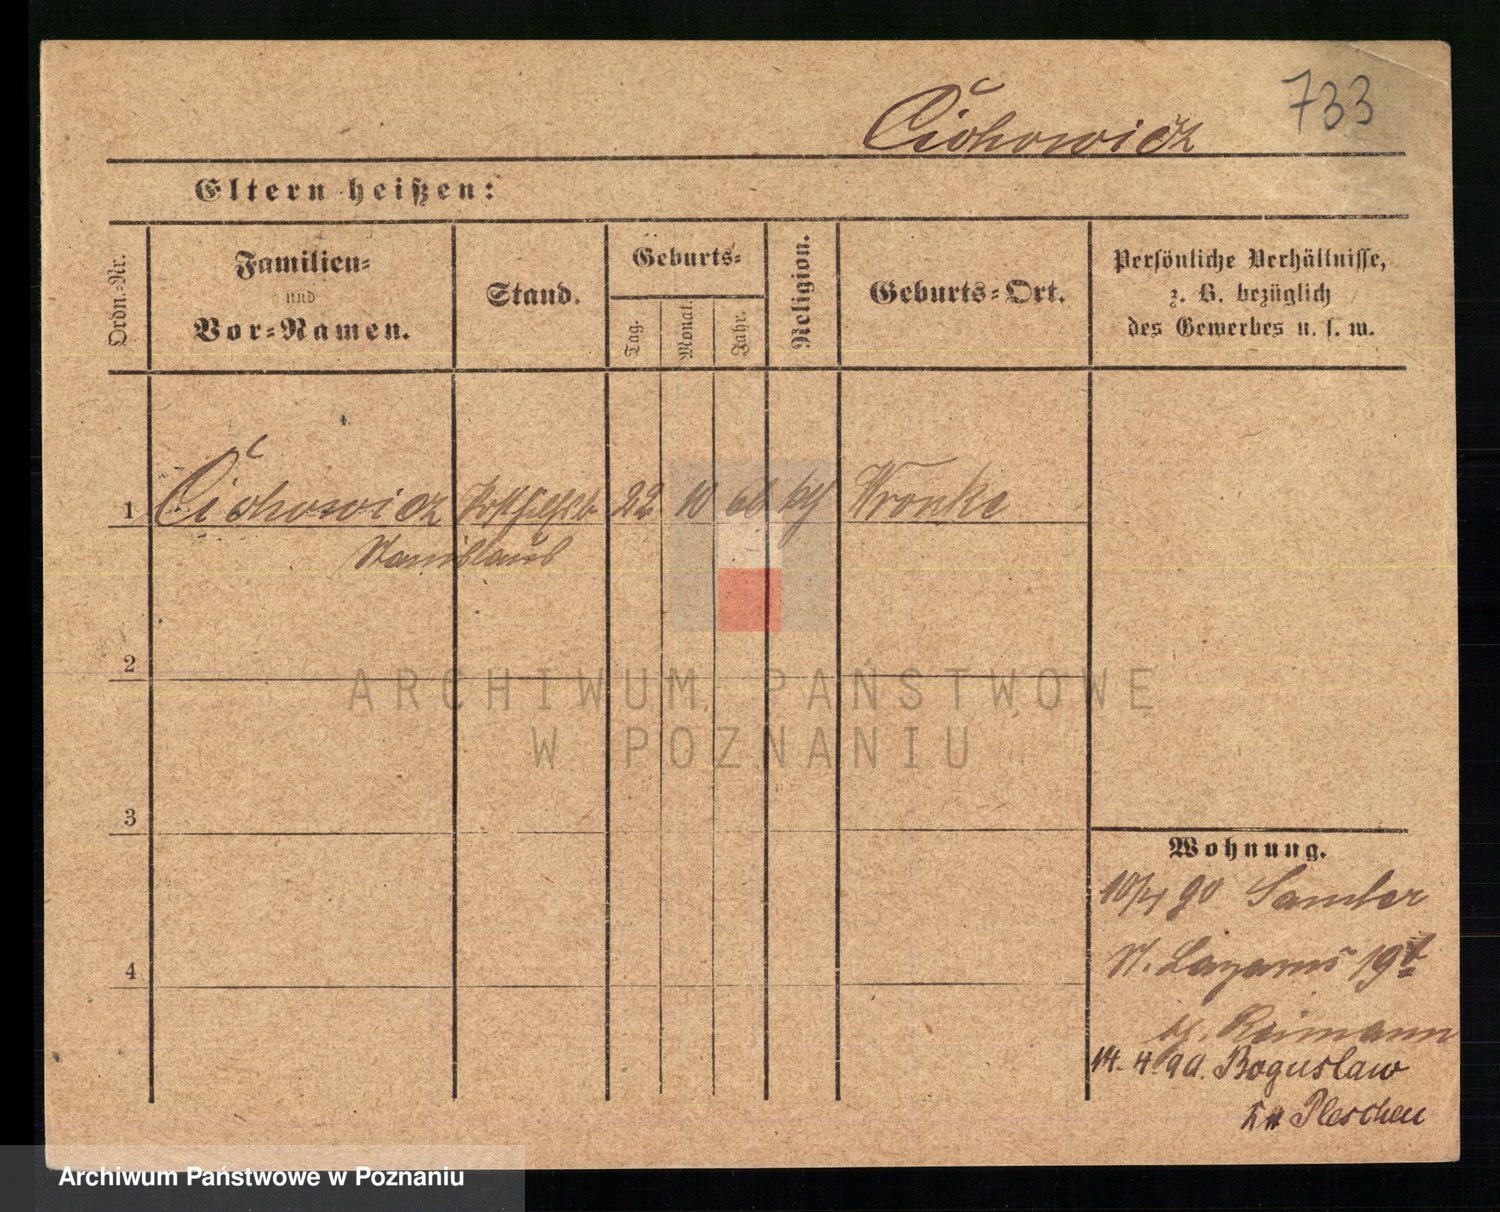 733
Cichowicz
Eltern heißen:
Ordn.-Nr.
Familien-
und
Vor-Namen.
Stand.
Geburts-
Tag.
Monat.
Jahr.
Religion.
Geburts-Ort.
Persönliche Verhältnisse,
z. B. bezüglich
des Gewerbes u. s. w.
1 Cichowicz 22 10 Wronke
Stanislaus
2
3
4
Wohnung.
90 Samter
St. Lazarus 19
Reimann
14. 4. 90. Boguslaw
Pleschen
ARCHIWUM PAŃSTWOWE
W POZNANIU
Archiwum Państwowe w Poznaniu